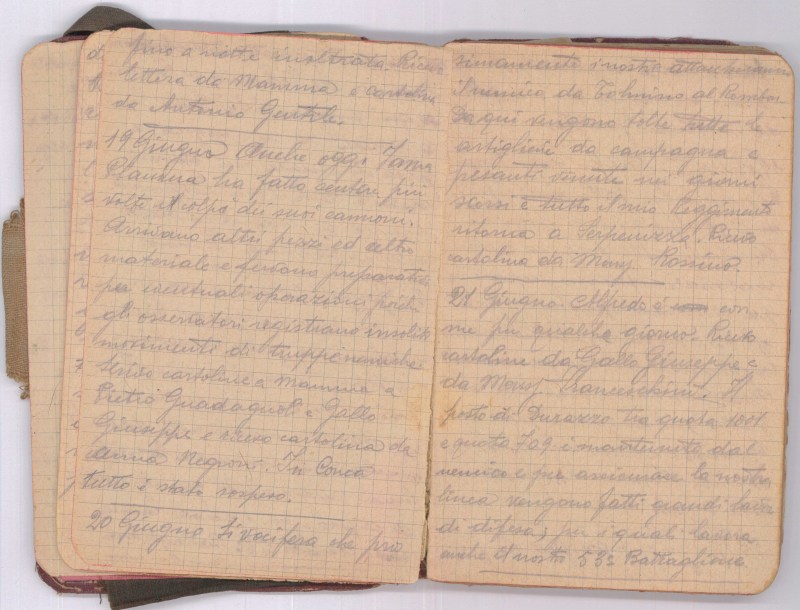 fino a notte inoltrata. Ricevo
lettera da Mamma e cartolina
da Antonio Gentile.
19 Giugno Anche oggi Jama
Planina ha fatto sentire più
volte il colpo dei suoi cannoni.
Arrivano altri pezzi ed altro
materiale e fervono preparativi
per eventuali operazioni, poichè
gli osservatori registrano insoliti
movimenti di truppe nemiche
Scrivo cartoline a Mamma a
Pietro Guadagnoli e Gallo
Giuseppe e ricevo cartolina da
Anna Negroni. In Conca
tutto è stato sospeso.
20 Giugno. Si vocifera che pros
simamente i nostri attaccheranno
il nemico da Tolmino al Rombon
Da qui vengono tolte tutte le
artiglierie da campagna e
pesanti venute nei giorni
scorsi e tutto il mio Reggimento
ritorna a Serpenizza. Ricevo
cartolina da Mons. Rossino.
21 Giugno. Alfredo è con
me per qualche giorno. Ricevo
cartoline da Gallo Giuseppe e
da Mons. Franceschini. Il
posto di Durazzo tra quota 1001
e quota 709 è mantenuto dal
nemico e per assicurare la nostra
linea vengono fatti grandi lavori
di difesa, per i quali lavora
anche il nostro 53s Battaglione